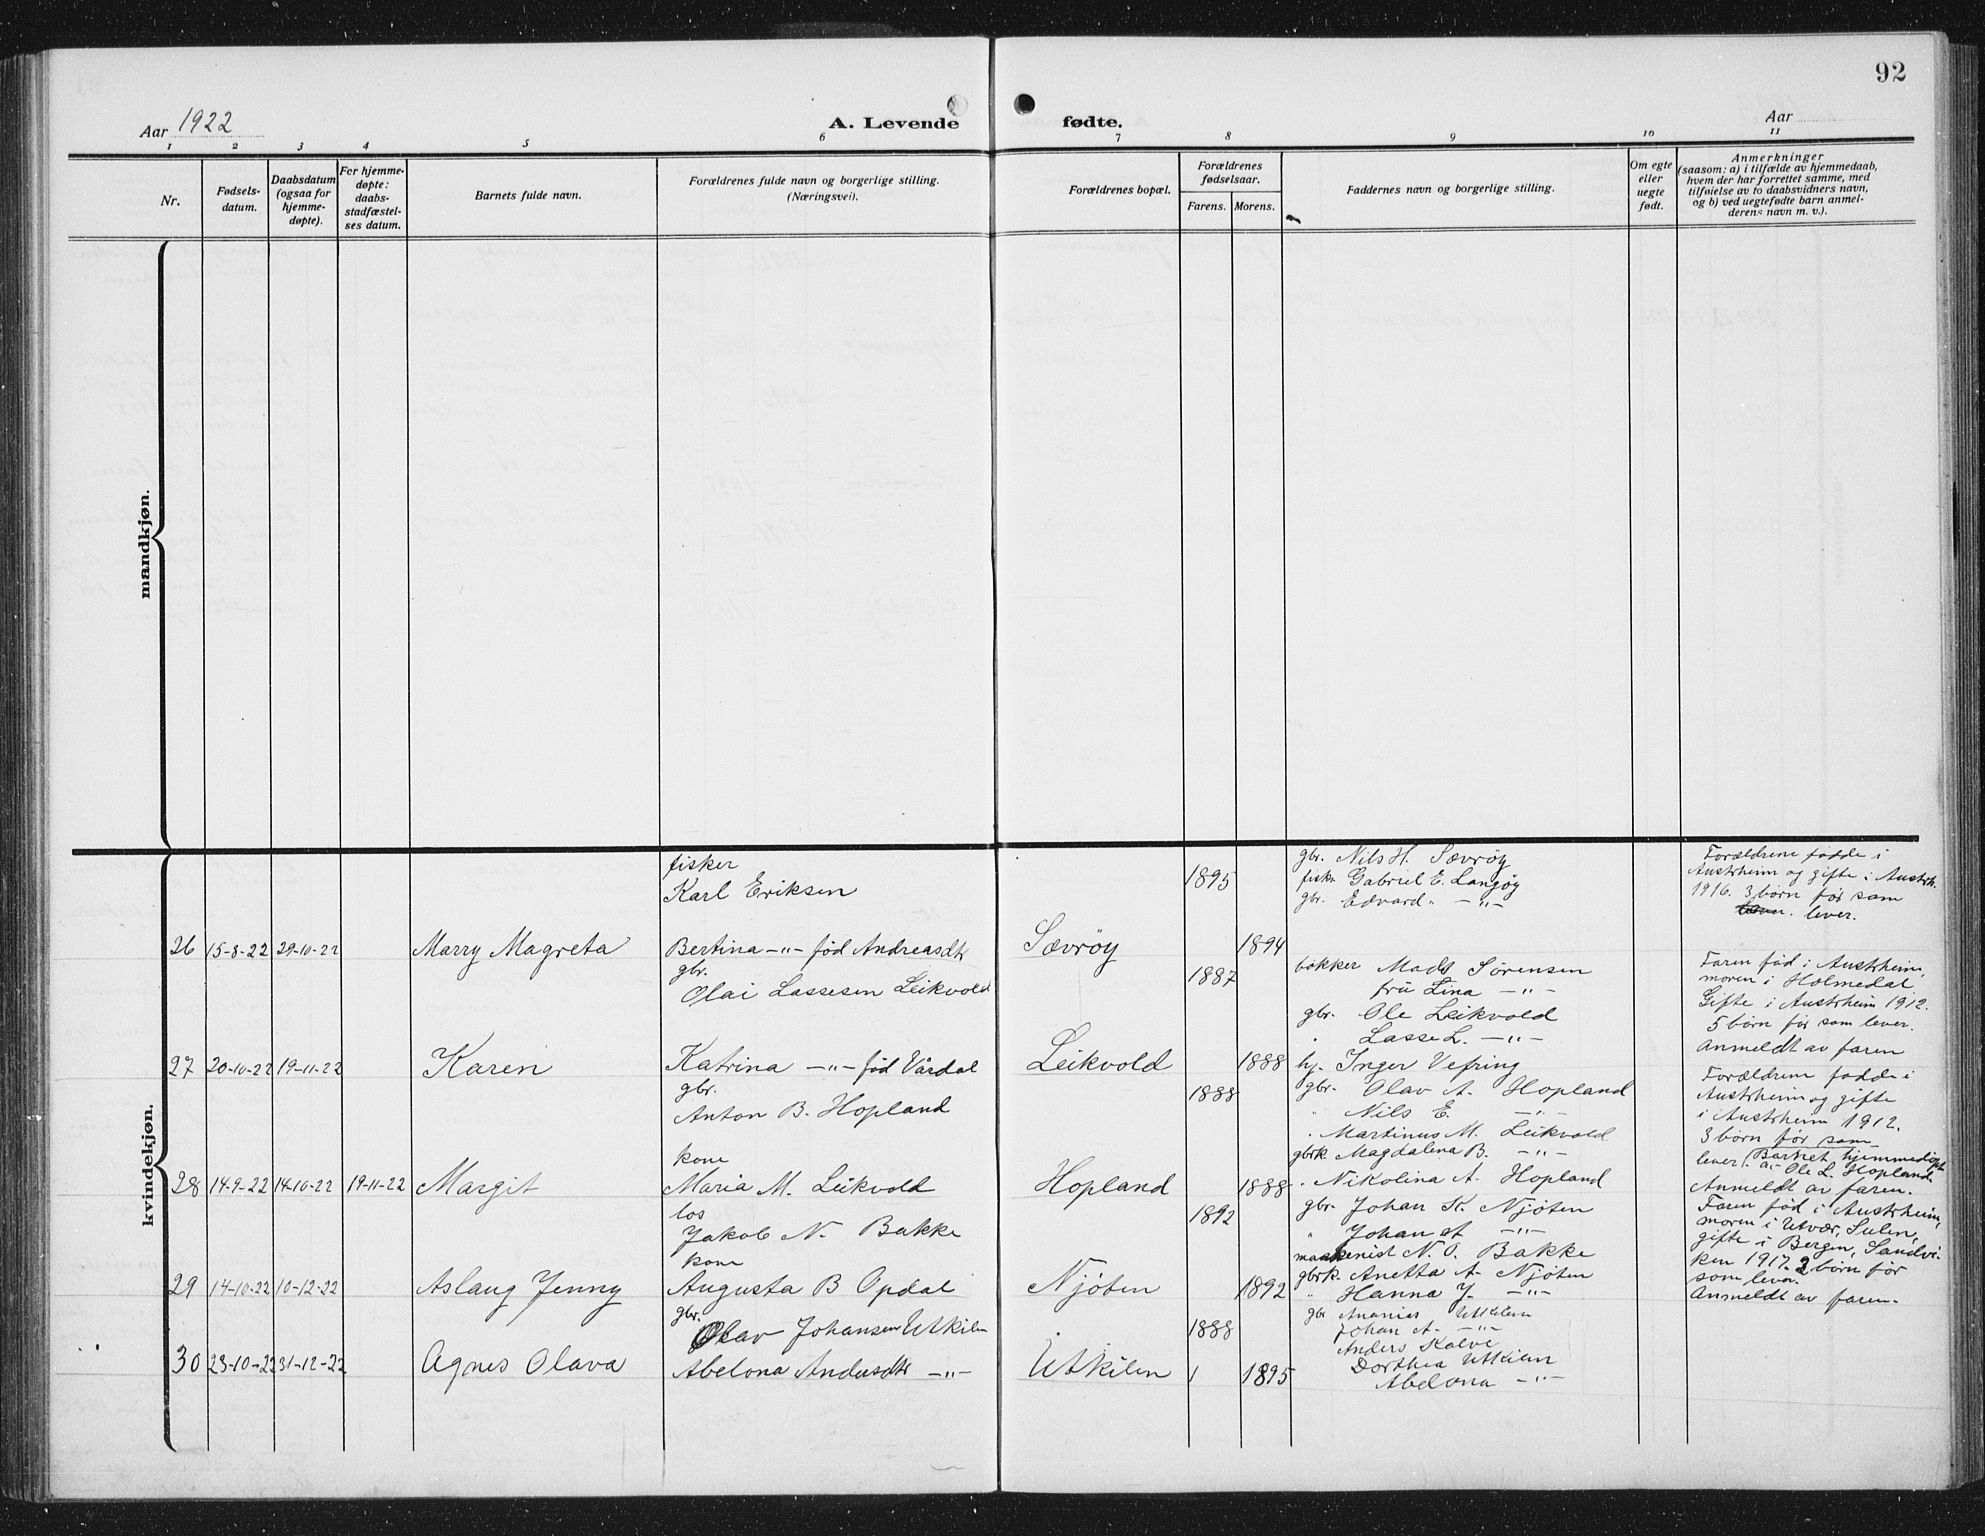 92
Aar 1922
A. Levende
fødte.
Aar
1 2 3 4 5 6 7 8 9 10 11
Nr.
Fødsels-
datum.
Daabsdatum
(ogsaa for
hjemme-
døpte).
For hjemme-
døpte:
daabs-
stadfæstel-
ses datum.
Barnets fulde navn.
Forældrenes fulde navn og borgerlige stilling.
(Næringsvei).
Forældrenes bopæl.
Forældrenes
fødselsaar.
Farens. Morens.
Faddernes navn og borgerlige stilling.
Om egte
eller
uegte
født.
Anmerkninger
(saasom: a) i tilfælde av hjemmedaab,
hvem der har forrettet samme, med
tilføielse av to daabsvidners navn,
og b) ved uegtefødte barn anmel-
derens navn m. v.).
mandkjøn.
kvindekjøn.
26 15-8-22 29-10-22
Marry Magreta
fisker
Karl Eriksen
Bertina -"- fød Andreasdtr
Sævrøy
1895
1894
gbr. Nils H. Sævrøy
fisk. Gabriel E. Langøy
gbr. Edvard " -"-
Forældrene fødde i
Austrheim og gifte i Austrh.
1916. 3 børn før som
lever.
27 20-10-22 19-11-22
Karen
gbr.
Olai Lassesen Leikvold
Katrina -"- fød Vårdal
Leikvold
1887
1888
bakker Mads Sørensen
fru Lina -"-
gbr. Ole Leikvold
Lasse L. -"-
hj. Inger Vefring
Faren fød i Austrheim,
moren i Holmedal
Gifte i Austrheim 1912.
5 børn før som lever.
Anmeldt av faren
28 14-9-22 14-10-22 19-11-22
Margit
gbr.
Anton B. Hopland
kone
Maria M. Leikvold
Hopland
1888
1888
gbr. Olav A. Hopland
" Nils E. -"-
" Martinus M. Leikvold
gbrk. Magdalena B. -"-
" Nikolina A. Hopland
Forældrene fødde i
Austrheim og gifte
i Austrheim 1912.
3 børn før som
lever. Barnet hjemmedøpt
av Ole L. Hopland.
Anmeldt av faren.
29 14-10-22 10-12-22
Aslaug Jenny
los
Jakob N. Bakke
kone
Augusta B Opdal
Njøten
1892
1892
gbr. Johan K. Njøten
" Johan A -"-
maskenist N. O. Bakke
gbrk. Anetta A. Njøten
" Hanna J. -"-
Faren fød i Austrheim,
moren i Utvær, Sulen,
gifte i Bergen, Sandvi-
ken 1917. 2 børn før
som lever.
Anmeldt av faren.
30 23-10-22 31-12-22
Agnes Olava
gbr.
Olav Johansen Utkilen
Abelona Andersdtr -"-
Utkilen
1888
1895
gbr Ananias Utkilen
Johan A. -"-
Anders Kalve
Dorthea Utkilen
Abelona -"-